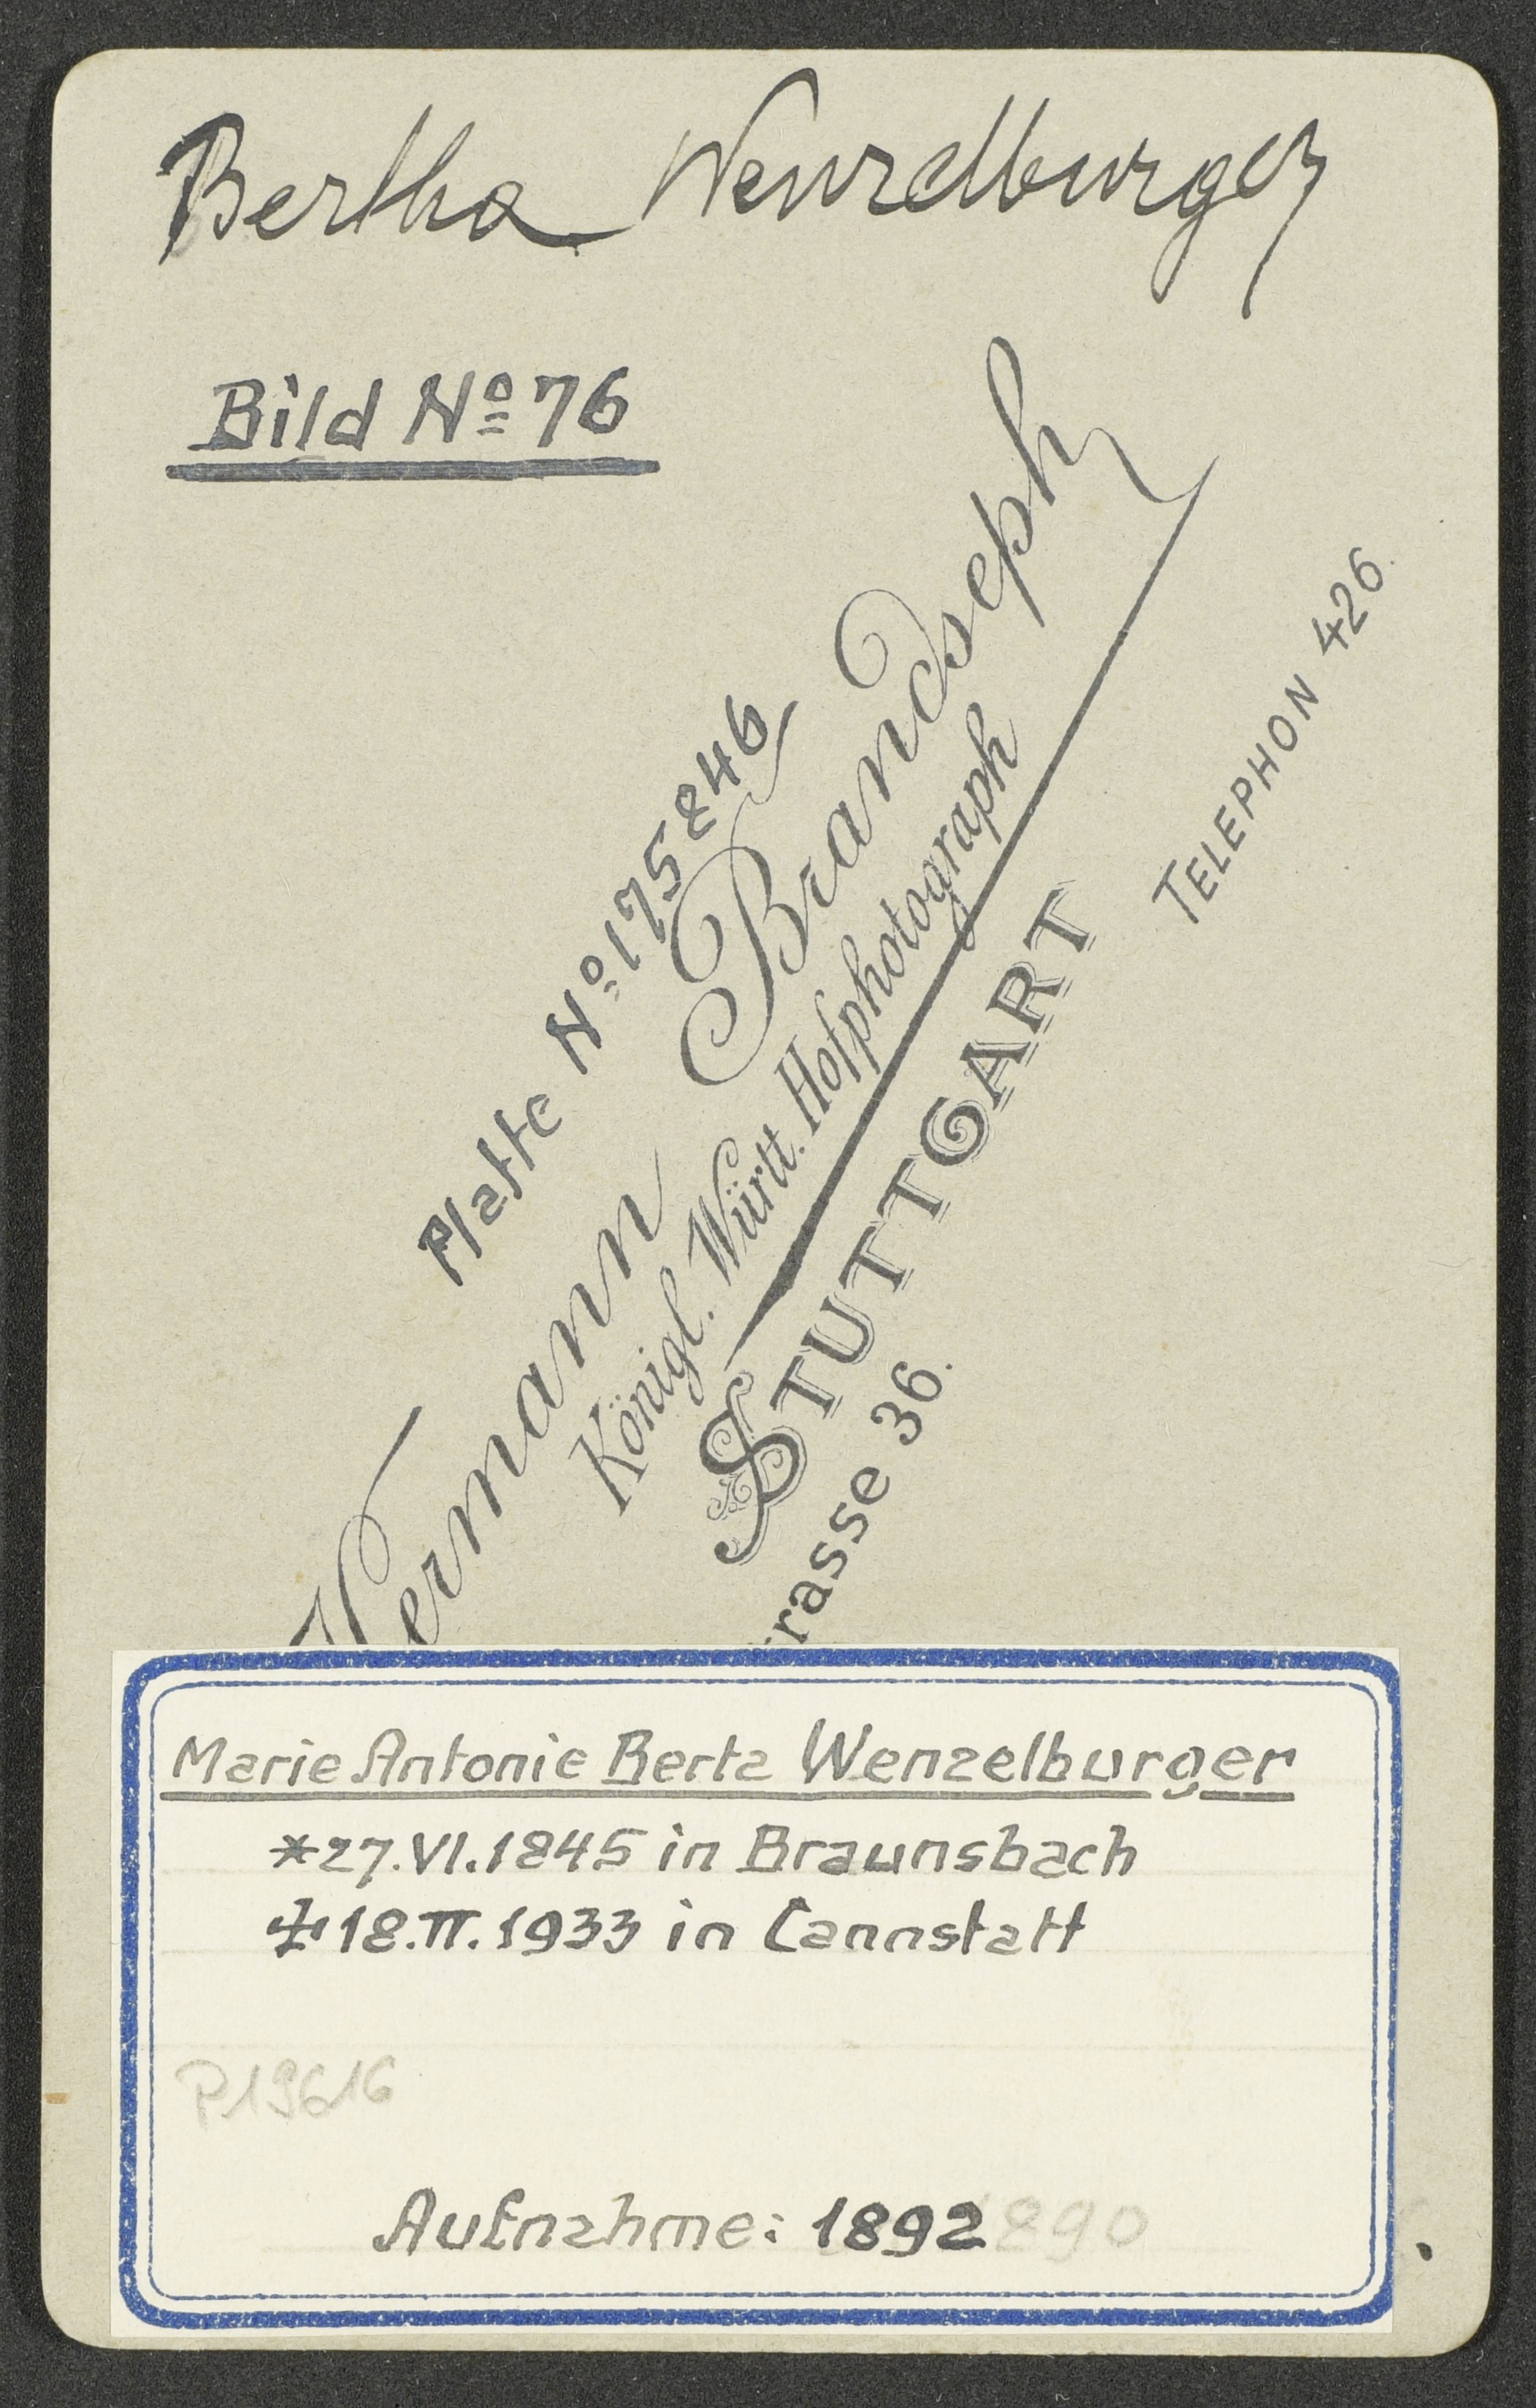 Bertha Wenzelburger
Bild No 76
Platte No 175846
Hermann Brandseph
Königl. Württ. Hofphotograph
STUTTGART
rasse 36.
TELEPHON 426.
Marie Antonie Berta Wenzelburger
*27.VI.1845 in Braunsbach
‡18.II.1933 in Cannstatt
P19616
Aufnahme: 1892 890